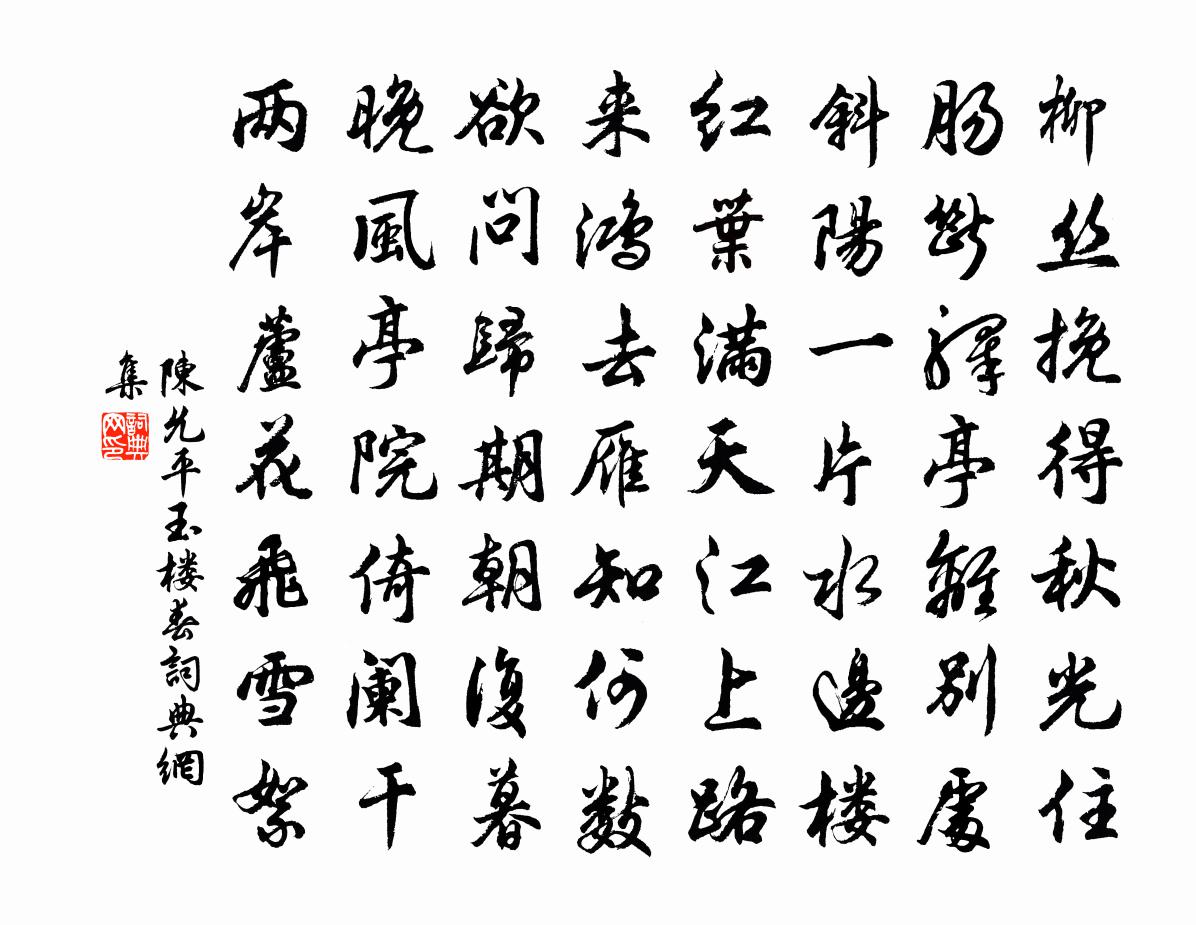 柳丝挽得秋光住
肠断驛亭離別處
斜陽一片水邊楼
红葉满天江上路
来鸿去雁知何数
欲问歸期朝復暮
晚風亭院倚阑干
两岸蘆花飛雪絮
陳允平玉楼春詞典網
集
詞典网印